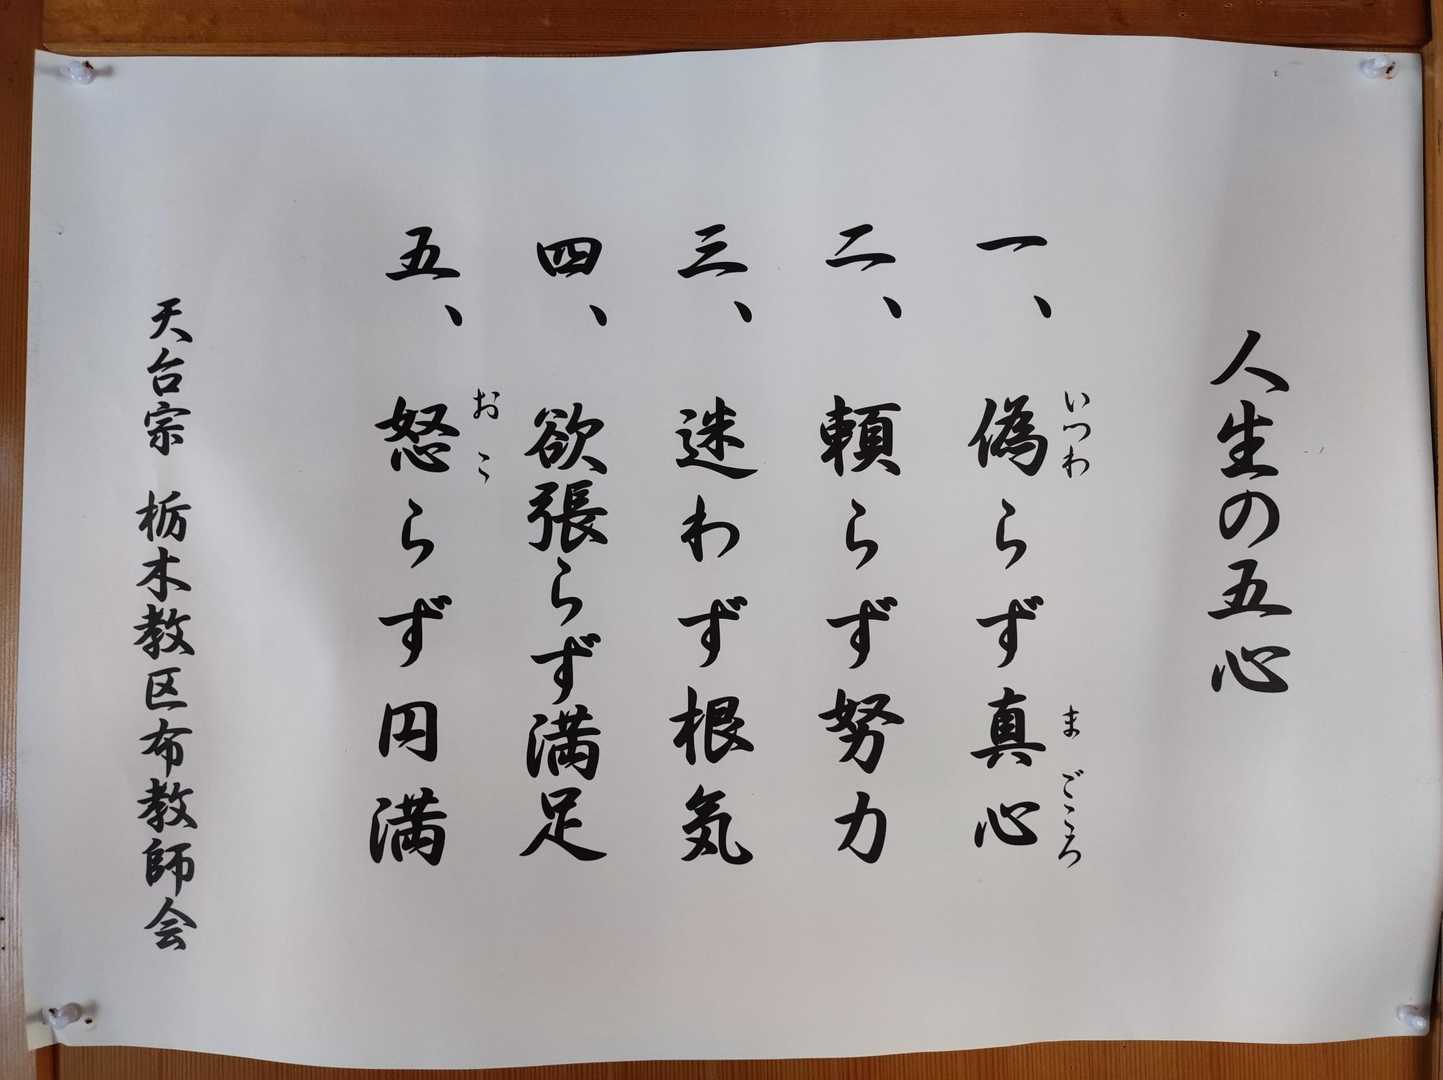 人生の五心
一、偽らず真心
いつわ
まごころ
二、頼らず努力
三、迷わず根気
四、欲張らず満足
五、怒らず円満
おこ
天台宗 栃木教区布教師会